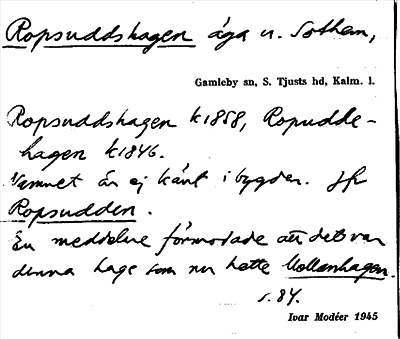 Ropsuddshagen äga u. Sothem,
Gamleby sn, S. Tjusts hd, Kalm. l.
Ropsuddshagen k1858, Ropudde-
hagen k1846.
Namnet är ej känt i bygden. Jfr
Ropsudden.
En meddelare förmodade att det var
denna hage som nu hette Mellanhagen.
s. 84.
Ivar Modéer 1945